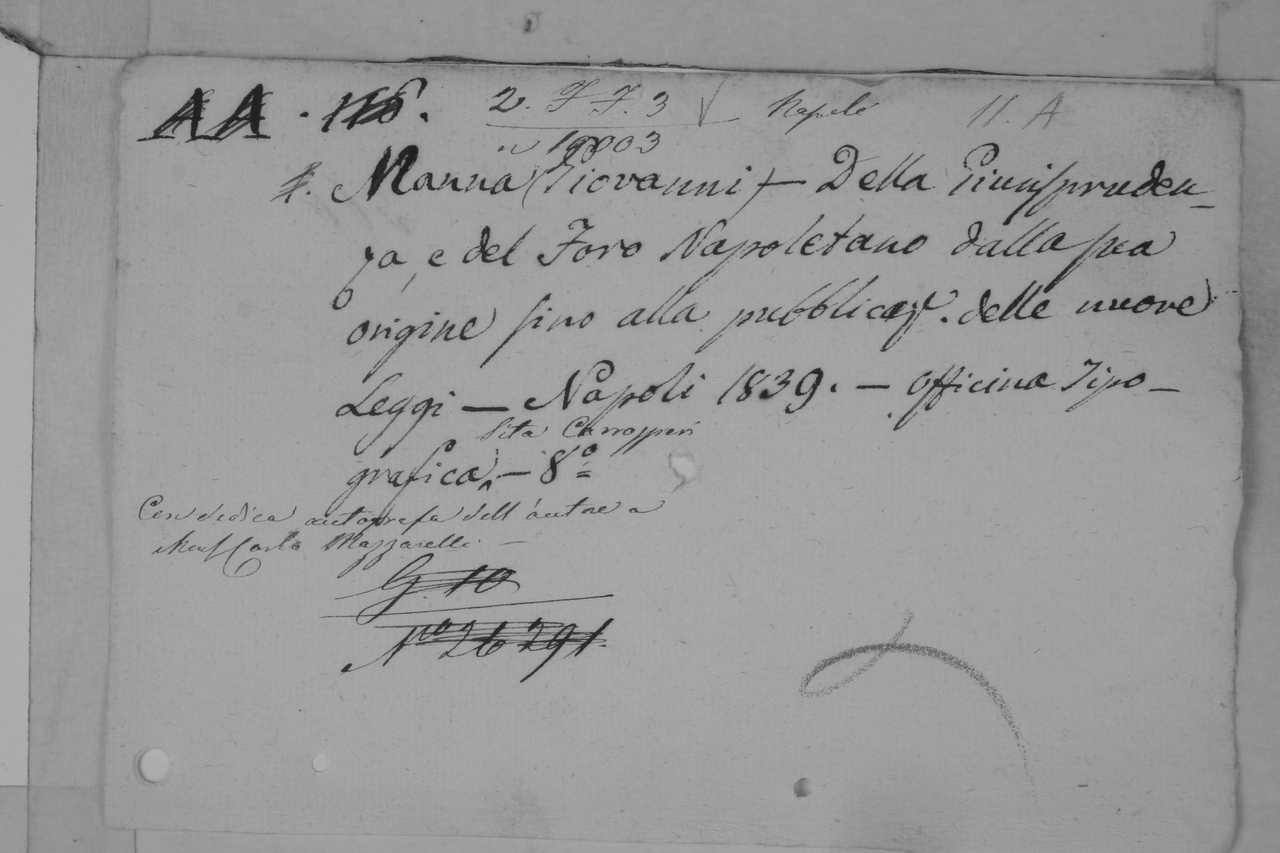 AA. 116. 2. F. F. 3 Napoli 11. A
n 19003
Manna (Giovanni) — Della Giurispruden-
za, e del Foro Napoletano dalla sua
origine sino alla pubblicaz.e delle nuove
Leggi — Napoli 1839. — Officina Tipo-
sita Carrozzieri
grafica, — 8°
Con dedica autografa dell'autore a
Carlo Mazzarelli —
G. 10
N.ro 26291.